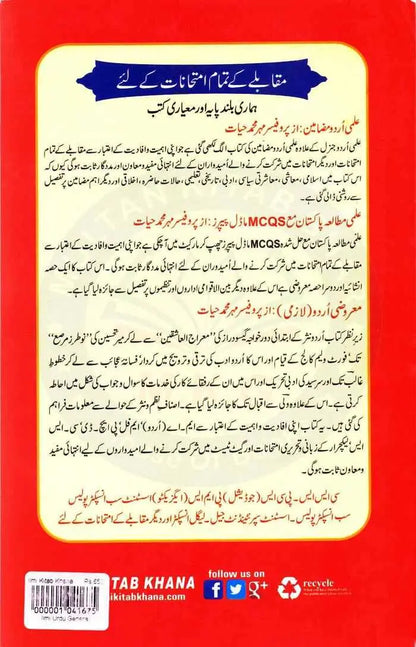 مقابلے کے تمام امتحانات کے لئے
ہماری بلند پایہ اور معیاری کتب
علمی اُردو مضامین: از پروفیسر مہر محمد حیات
علمی اُردو جنرل کے علاوہ علمی اُردو مضامین کی کتاب الگ لکھی گئی ہے جو اپنی اہمیت و افادیت کے اعتبار سے مقابلے کے تمام
امتحانات اور دیگر امتحانات میں شرکت کرنے والے اُمیدواران کے لئے انتہائی مفید و معاون اور مددگار ثابت ہوگی کیوں کہ
اس کتاب میں اسلامی، معاشی، معاشرتی سیاسی، ادبی، تاریخی، تعلیمی، حالات حاضرہ، اخلاقی اور دیگر اہم مضامین پر تفصیل
سے روشنی ڈالی گئی ہے۔
علمی مطالعہ پاکستان مع MCQS ماڈل پیپرز: از پروفیسر مہر محمد حیات
علمی مطالعہ پاکستان مع حل شدہ MCQS ماڈل پیپرز چھپ کر مارکیٹ میں آچکی ہے جو اپنی اہمیت اور افادیت کے اعتبار سے
مقابلے کے تمام امتحانات میں شرکت کرنے والے اُمیدوران کے لئے انتہائی مددگار ثابت ہوگی۔ اس کتاب کا ایک حصہ
انشائیہ اور دوسرا حصہ معروضی ہے اس کے علاوہ دیگر بین الاقوامی اداروں اور تنظیموں پر تفصیل سے جائزہ لیا گیا ہے۔
معروضی اُردو (لازمی): از پروفیسر مہر محمد حیات
زیر نظر کتاب اُردو نثر کے ابتدائی دور خواجہ گیسو دراز کی "معراج العاشقین" سے لے کر میر تحسین کی "نوطرز مرصع"
تک، فورٹ ولیم کالج کے قیام اور اس کا اُردو ادب کی ترقی و ترویج میں کردار فسانہ عجائب سے لے کر خطوطِ
غالب تک اور سرسید کی ادبی تحریک اور اس میں ان کے رفقائے کار کی خدمات کا سوال و جواب کی شکل میں احاطہ
کرتی ہے۔ اس کے علاوہ ولی سے اقبال تک کا جائزہ لیا گیا ہے۔ اصناف نظم و نثر کے حوالے سے معلومات فراہم
کی گئی ہیں۔ یہ کتاب اپنی افادیت اور اہمیت کے اعتبار سے ایم۔ اے (اُردو) "ایم فل" پی ایچ۔ ڈی، سی۔
ایس ایس، لیکچرار کے زبانی و تحریری امتحانات اور گیٹ ٹیسٹ میں شرکت کرنے والے اُمیدواروں کے لیے انتہائی مفید
و معاون ثابت ہوگی۔
سی ایس ایس۔ پی سی ایس (جوڈیشل) پی ایم ایس (ایگزیکٹو) اسسٹنٹ سب انسپکٹر پولیس
سب انسپکٹر پولیس۔ اسسٹنٹ سپرنٹینڈنٹ جیل۔ لیگل انسپکٹر اور دیگر مقابلے کے امتحانات کے لئے
Ilmi Kitab Khana
000001 041675
Ilmi Urdu General
TAB KHANA
ikitabkhana.com
follow us on
recycle